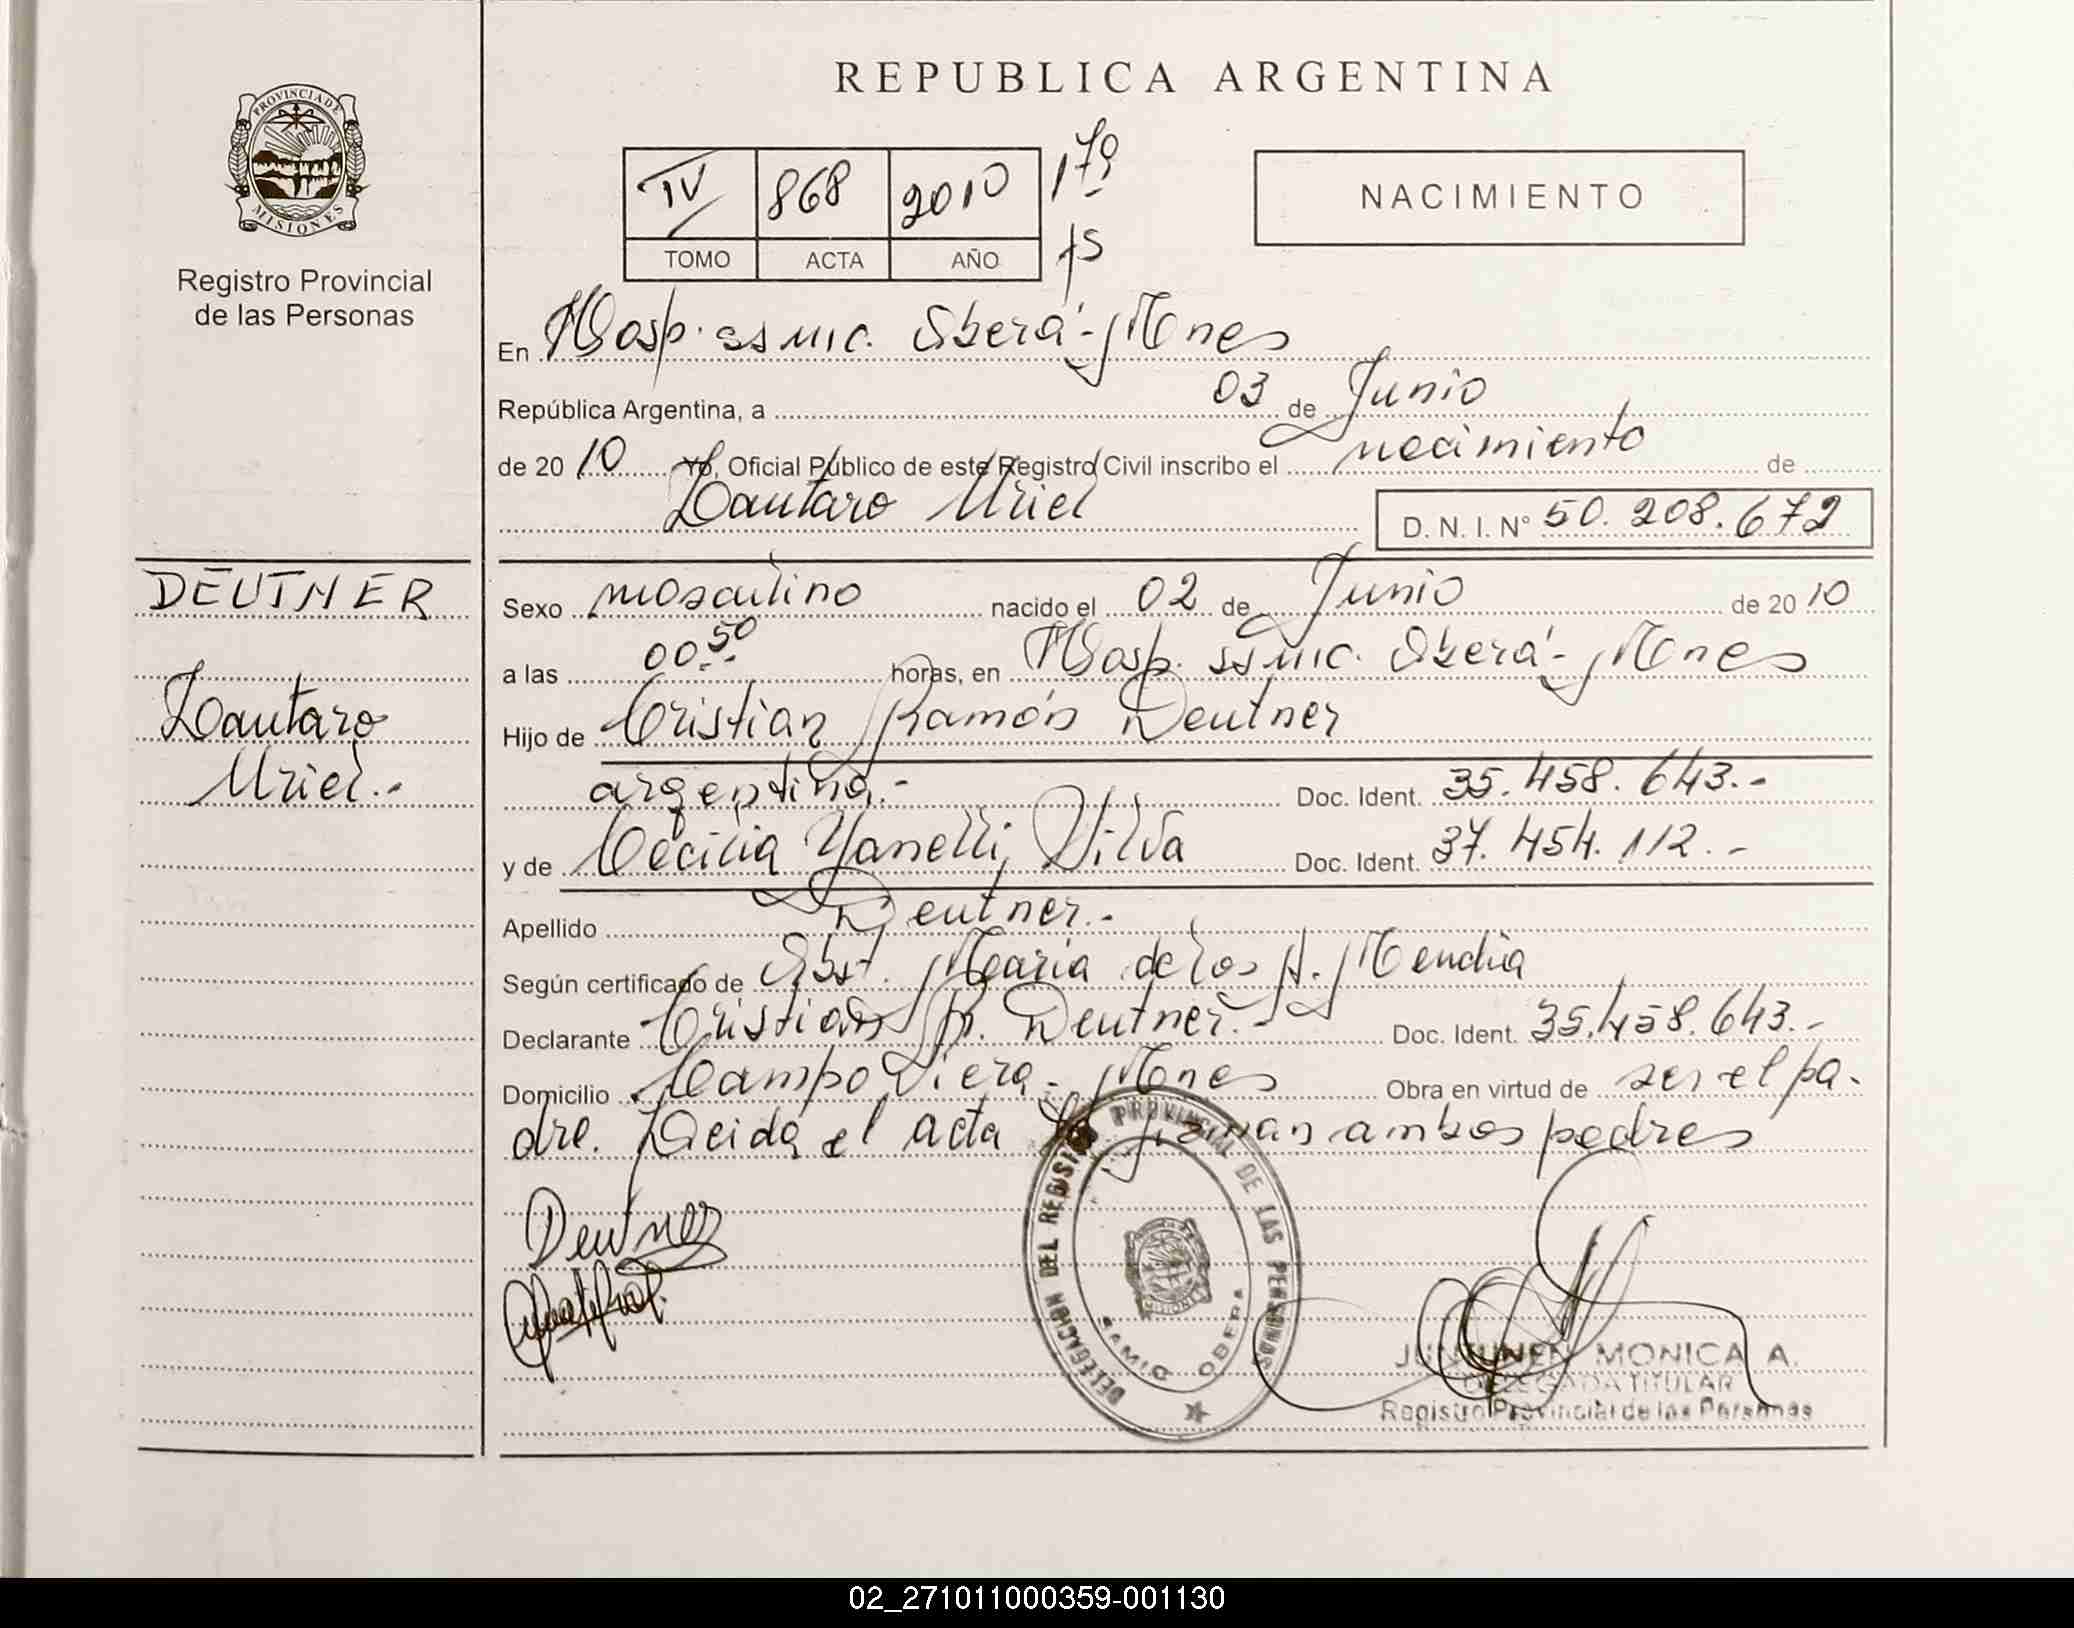 REPUBLICA ARGENTINA
PROVINCIA DE
MISIONES
Registro Provincial
de las Personas
IV 868 2010 179
TOMO ACTA AÑO fs
NACIMIENTO
En Hosp. SSMIC. Oberá - Mnes
República Argentina, a 03 de Junio
de 2010 Yo, Oficial Público de este Registro Civil inscribo el nacimiento de
Lautaro Uriel D. N. I. N° 50.208.672
DEUTNER
Lautaro
Uriel.-
Sexo masculino nacido el 02 de Junio de 2010
a las 00.50 horas, en Hosp. SSMIC. Oberá - Mnes
Hijo de Cristian Ramón Deutner
argentino.- Doc. Ident. 35.458.643.-
y de Cecilia Yanelli Silva Doc. Ident. 37.454.112.-
Apellido Deutner.-
Según certificado de Obst. María de los A. Mendia
Declarante Cristian R. Deutner.- Doc. Ident. 35.458.643.-
Domicilio Campo Viera - Mnes Obra en virtud de ser el pa-
dre. Leida el acta la firman ambos padres
Deutner
DELEGACION DEL REGISTRO PROVINCIAL DE LAS PERSONAS
MISIONES
SAMIC OBERA
JUNTUNEN MONICA A.
DELEGADA TITULAR
Registro Provincial de las Personas
02_271011000359-001130